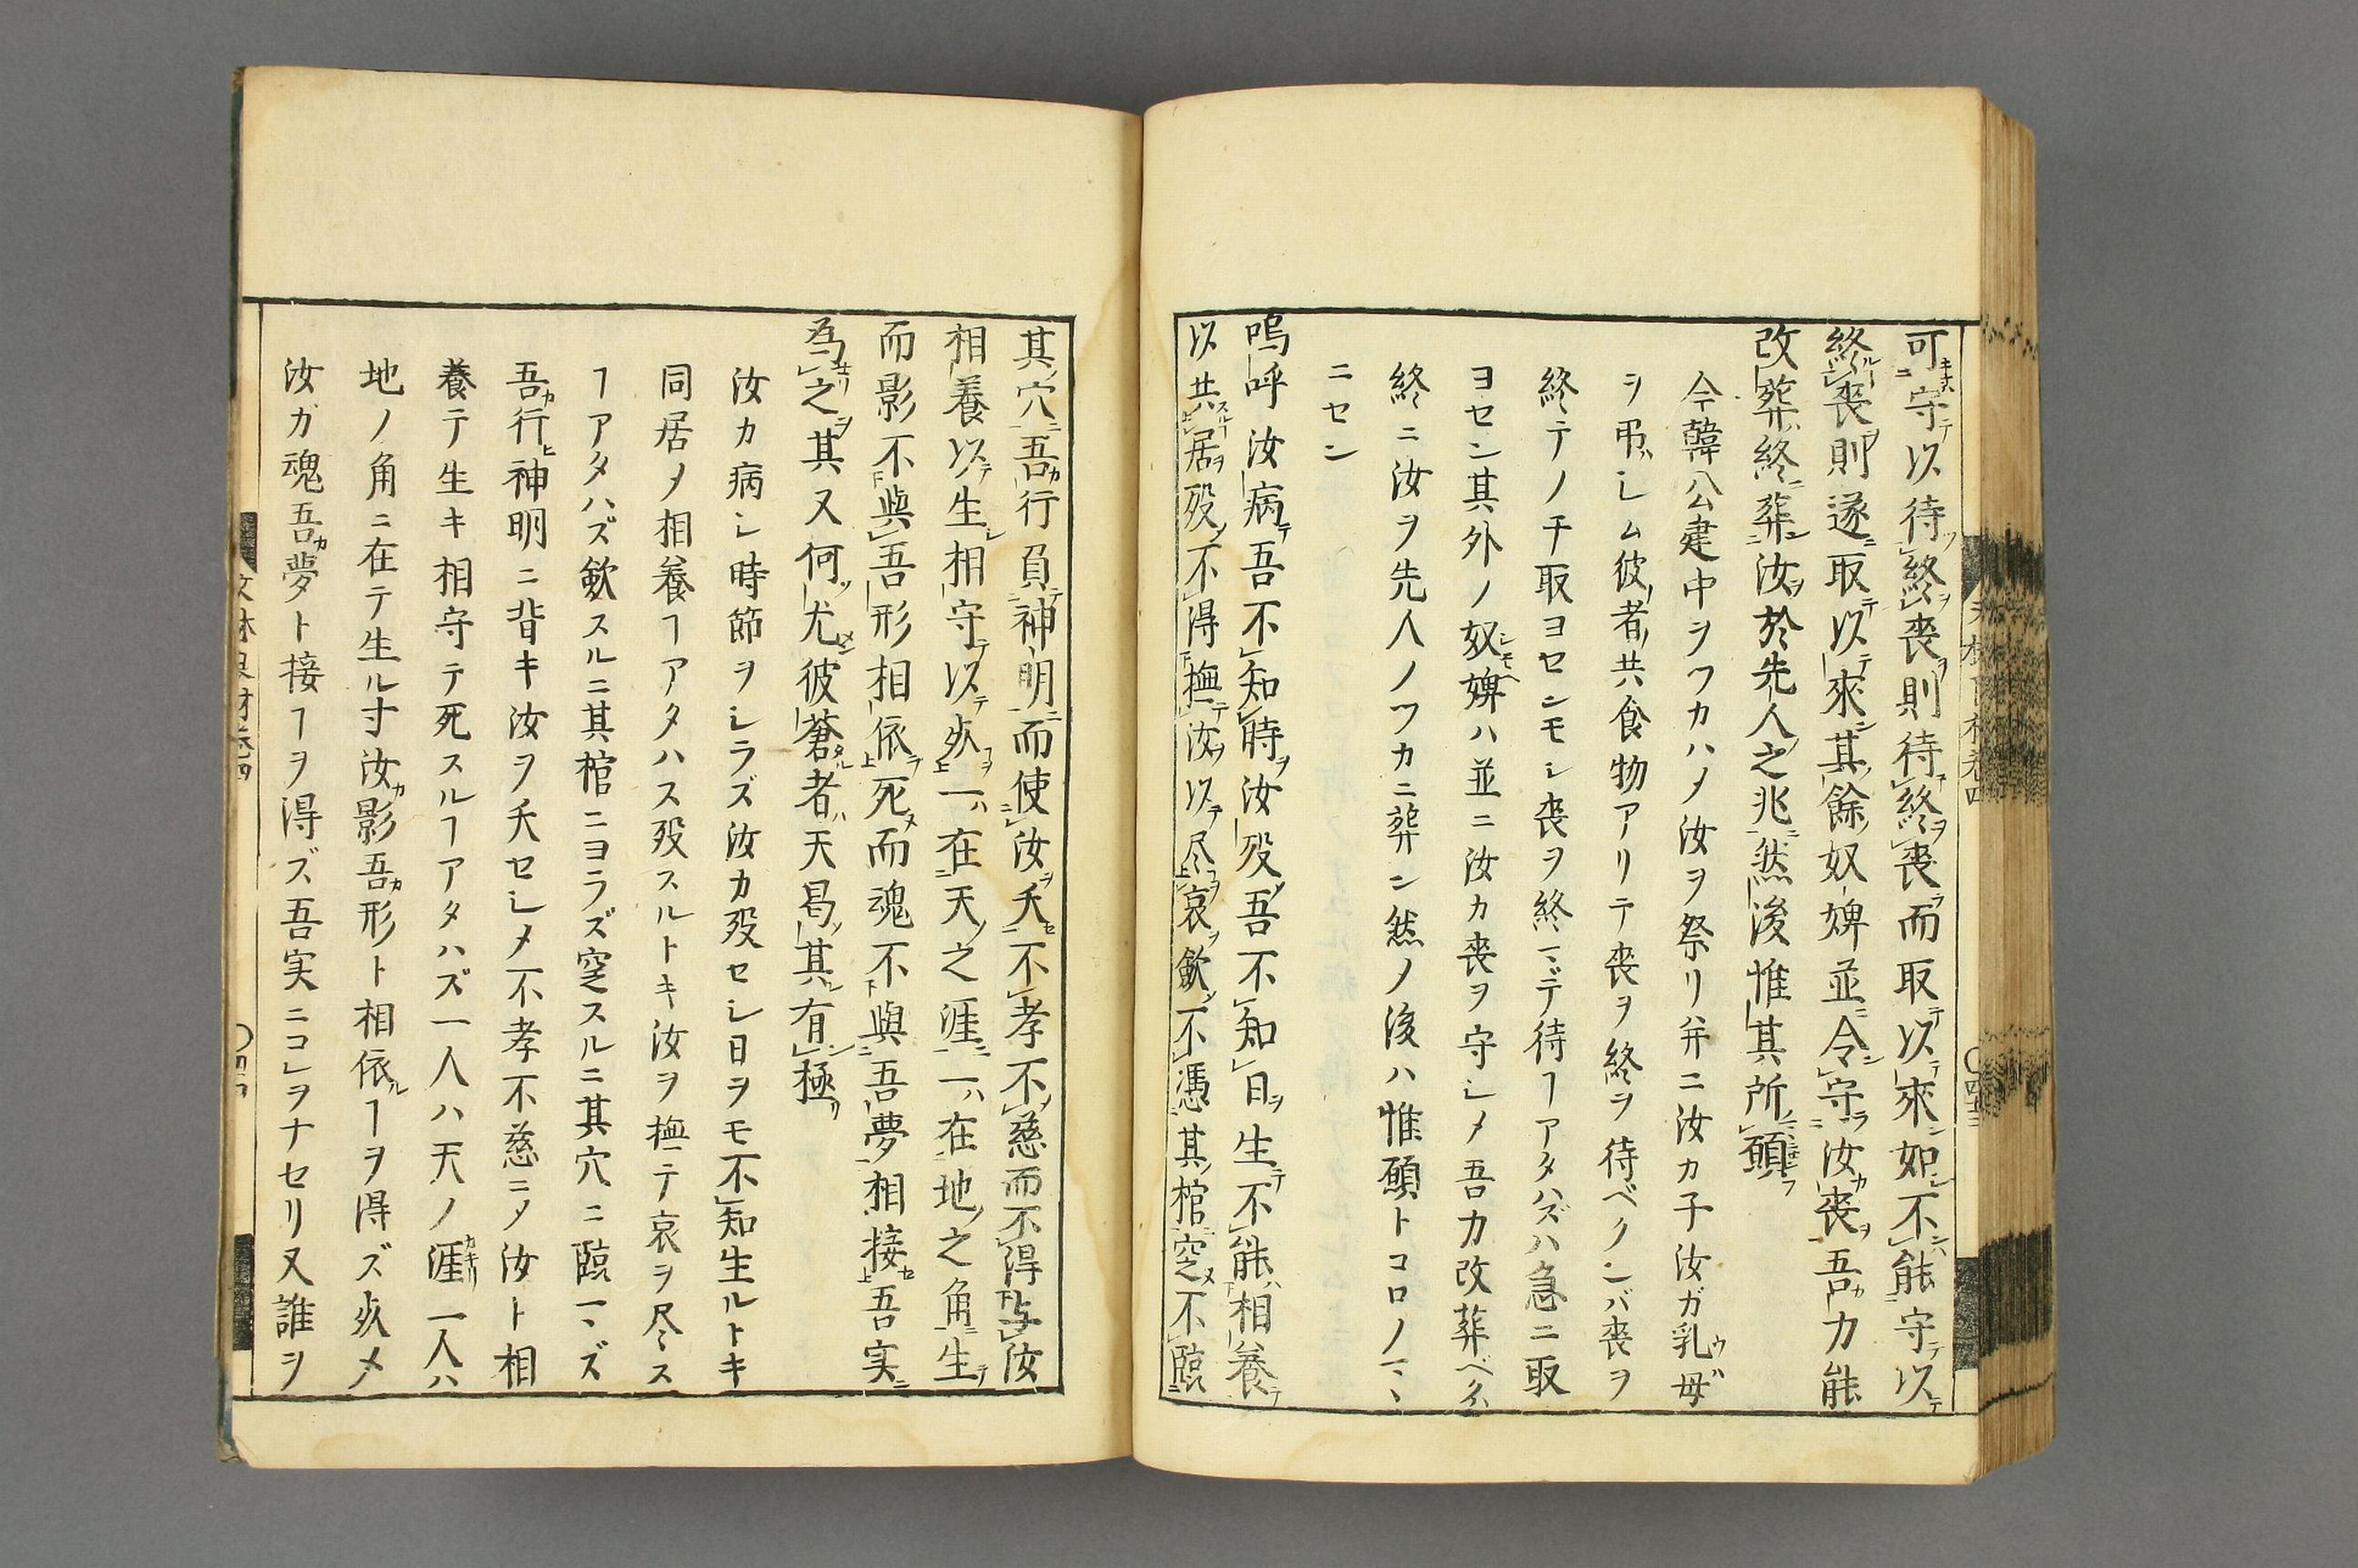 可守以待終喪則待終喪而取以來如不能守以
終喪則遂取以來其餘奴婢並令守汝喪吾力能
改葬終葬汝於先人之兆然後惟其所願
今韓公建中ヲツカハメ汝ヲ祭リ幷ニ汝カ子汝ガ乳母
ヲ弔ハシム彼者共食物アリテ喪ヲ終ヲ待ベクンバ喪ヲ
終テノチ取ヨセンモシ喪ヲ終マデ待ヿアタハズハ急ニ取
ヨセン其外ノ奴婢ハ並ニ汝カ喪ヲ守シメ吾力改葬ベクハ
終ニ汝ヲ先人ノツカニ葬ン然ノ後ハ惟願トコロノマヽ
ニセン
嗚呼汝病吾不知時汝殁吾不知日生不能相養
以共居殁不得撫汝以尽哀斂不憑其棺窆不臨
其穴吾行負神明而使汝夭不孝不慈而不得与汝
相養以生相守以死一在天之涯一在地之角生
而影不與吾形相依死而魂不與吾夢相接吾実
為之其又何尤彼蒼者天曷其有極
汝カ病シ時節ヲシラズ汝カ殁セシ日ヲモ不知生ルトキ
同居メ相養ヿアタハス殁スルトキ汝ヲ撫テ哀ヲ尽ス
ヿアタハズ斂スルニ其棺ニヨラズ窆スルニ其穴ニ臨マズ
吾行神明ニ背キ汝ヲ夭セシメ不孝不慈ニメ汝ト相
養テ生キ相守テ死スルヿアタハズ一人ハ天ノ涯一人ハ
地ノ角ニ在テ生ル寸汝影吾形ト相依ヿヲ得ズ死メ
汝ガ魂吾夢ト接ヿヲ得ズ吾実ニコレヲナセリ又誰ヲ